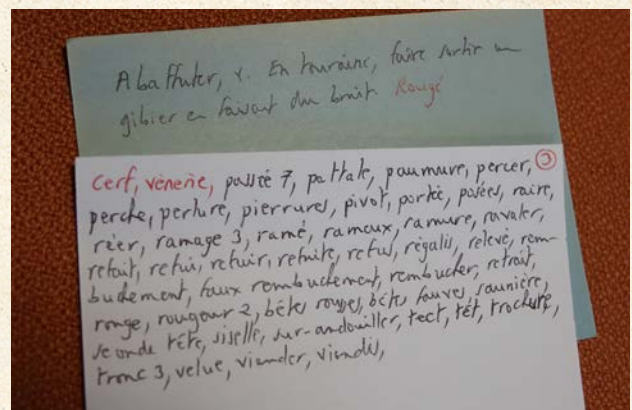 Abaffuter, v. En touraine, faire sortir un
gibier en faisant du bruit. Rougé
Cerf, vénerie, passé 7, pattale, paumure, percer, ③
perche, perlure, pierrures, pivot, portée, posées, raire,
réer, ramage 3, ramé, rameux, ramure, ravaler,
refait, refui, refuir, refuite, refus, régalis, relevé, rem-
buchement, faux rembuchement, rembucher, retrait,
ronge, rougeur 2, bêtes rouges, bêtes fauves, saunière,
seconde tête, siselle, sur-andouiller, tect, têt, trochure,
tronc 3, velue, viander, viandis,